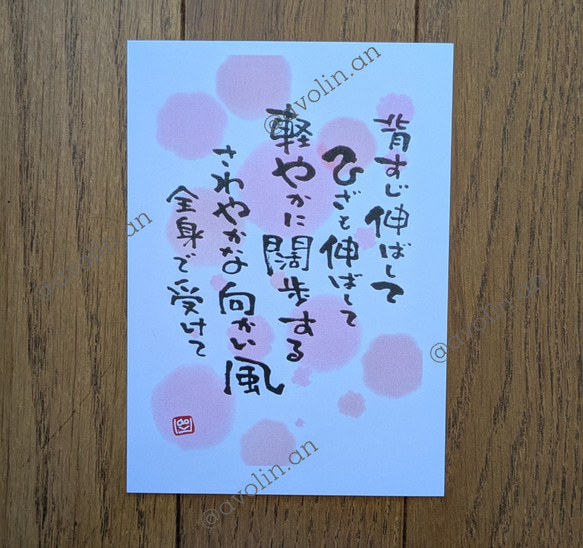 背すじ伸ばして
ひざも伸ばして
軽やかに闊歩する
さわやかな向かい風
全身で受けて
@avolin.an
@avolin.an
@avolin.an
@avolin.an